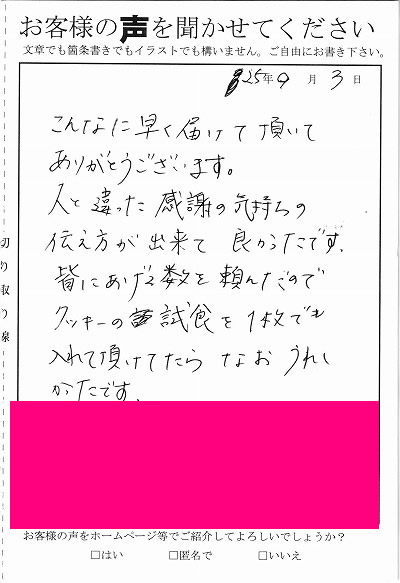 お客様の声を聞かせてください
文章でも箇条書きでもイラストでも構いません。ご自由にお書き下さい。
25年9月3日
こんなに早く届けて頂いて
ありがとうございます。
人と違った感謝の気持ちの
伝え方が出来て良かったです。
皆にあげる数を頼んだので
クッキーの試食を1枚でも
入れて頂けてたらなおうれし
かったです。
切り取り線
お客様の声をホームページ等でご紹介してよろしいでしょうか?
□はい □匿名で □いいえ